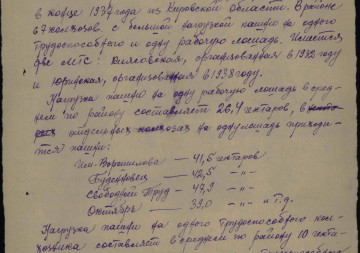 в конце 1937 года из Кировской области. В районе
67 колхозов с большой нагрузкой пашни на одного
трудоспособного и одну рабочую лошадь. Имеется
две МТС: организованная в 1932 году
и организованная в 1938 году.
Нагрузка пашни на одну рабочую лошадь в сред-
нем по району составляет 26,4 гектаров, в
отдельных колхозах на одну лошадь приходи-
тся пашни:
Им. Ворошилова — 41,5 гектаров
Буденовец — 42,5 —„—
Свободный Труд — 47,9 —„—
Октябрь — 39,0 —„— и т.д.
Нагрузка пашни на одного трудоспособного кол-
хозника составляет в среднем по району 10 гекта-